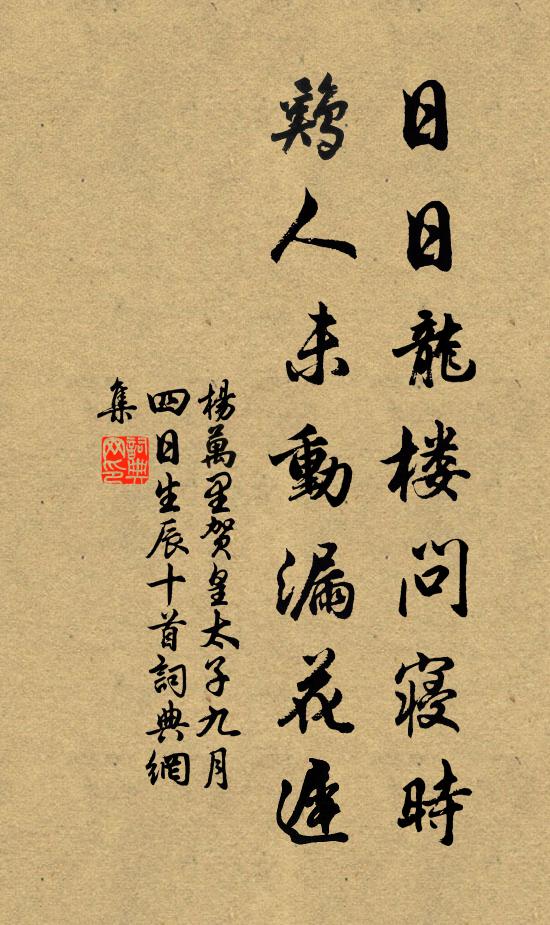 日日龍楼問寝時
鷄人未動漏花遲
楊萬里賀皇太子九月
四日生辰十首詞典網
集
詞典
网印